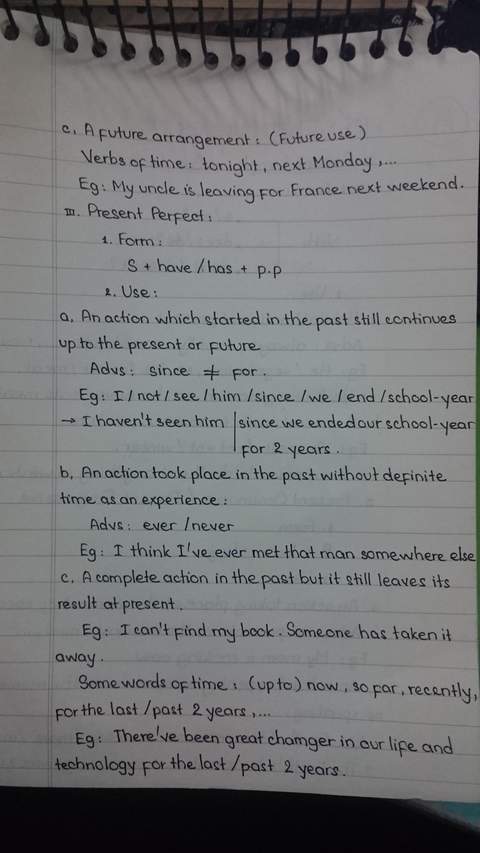 c. A future arrangement: (Future use)
Verbs of time: tonight, next Monday,...
Eg: My uncle is leaving for France next weekend.
III. Present Perfect:
1. Form:
S + have/has + p.p
2. Use:
a. An action which started in the past still continues
up to the present or future
Advs: since ≠ for.
Eg: I/not/see/him/since/we/end/school-year
→ I haven't seen him | since we ended our school-year
for 2 years.
b. An action took place in the past without definite
time as an experience:
Advs: ever/never
Eg: I think I've ever met that man somewhere else
c. A complete action in the past but it still leaves its
result at present.
Eg: I can't find my book. Someone has taken it
away.
Some words of time: (up to) now, so far, recently,
for the last/past 2 years,...
Eg: There've been great chamger in our life and
technology for the last/past 2 years.